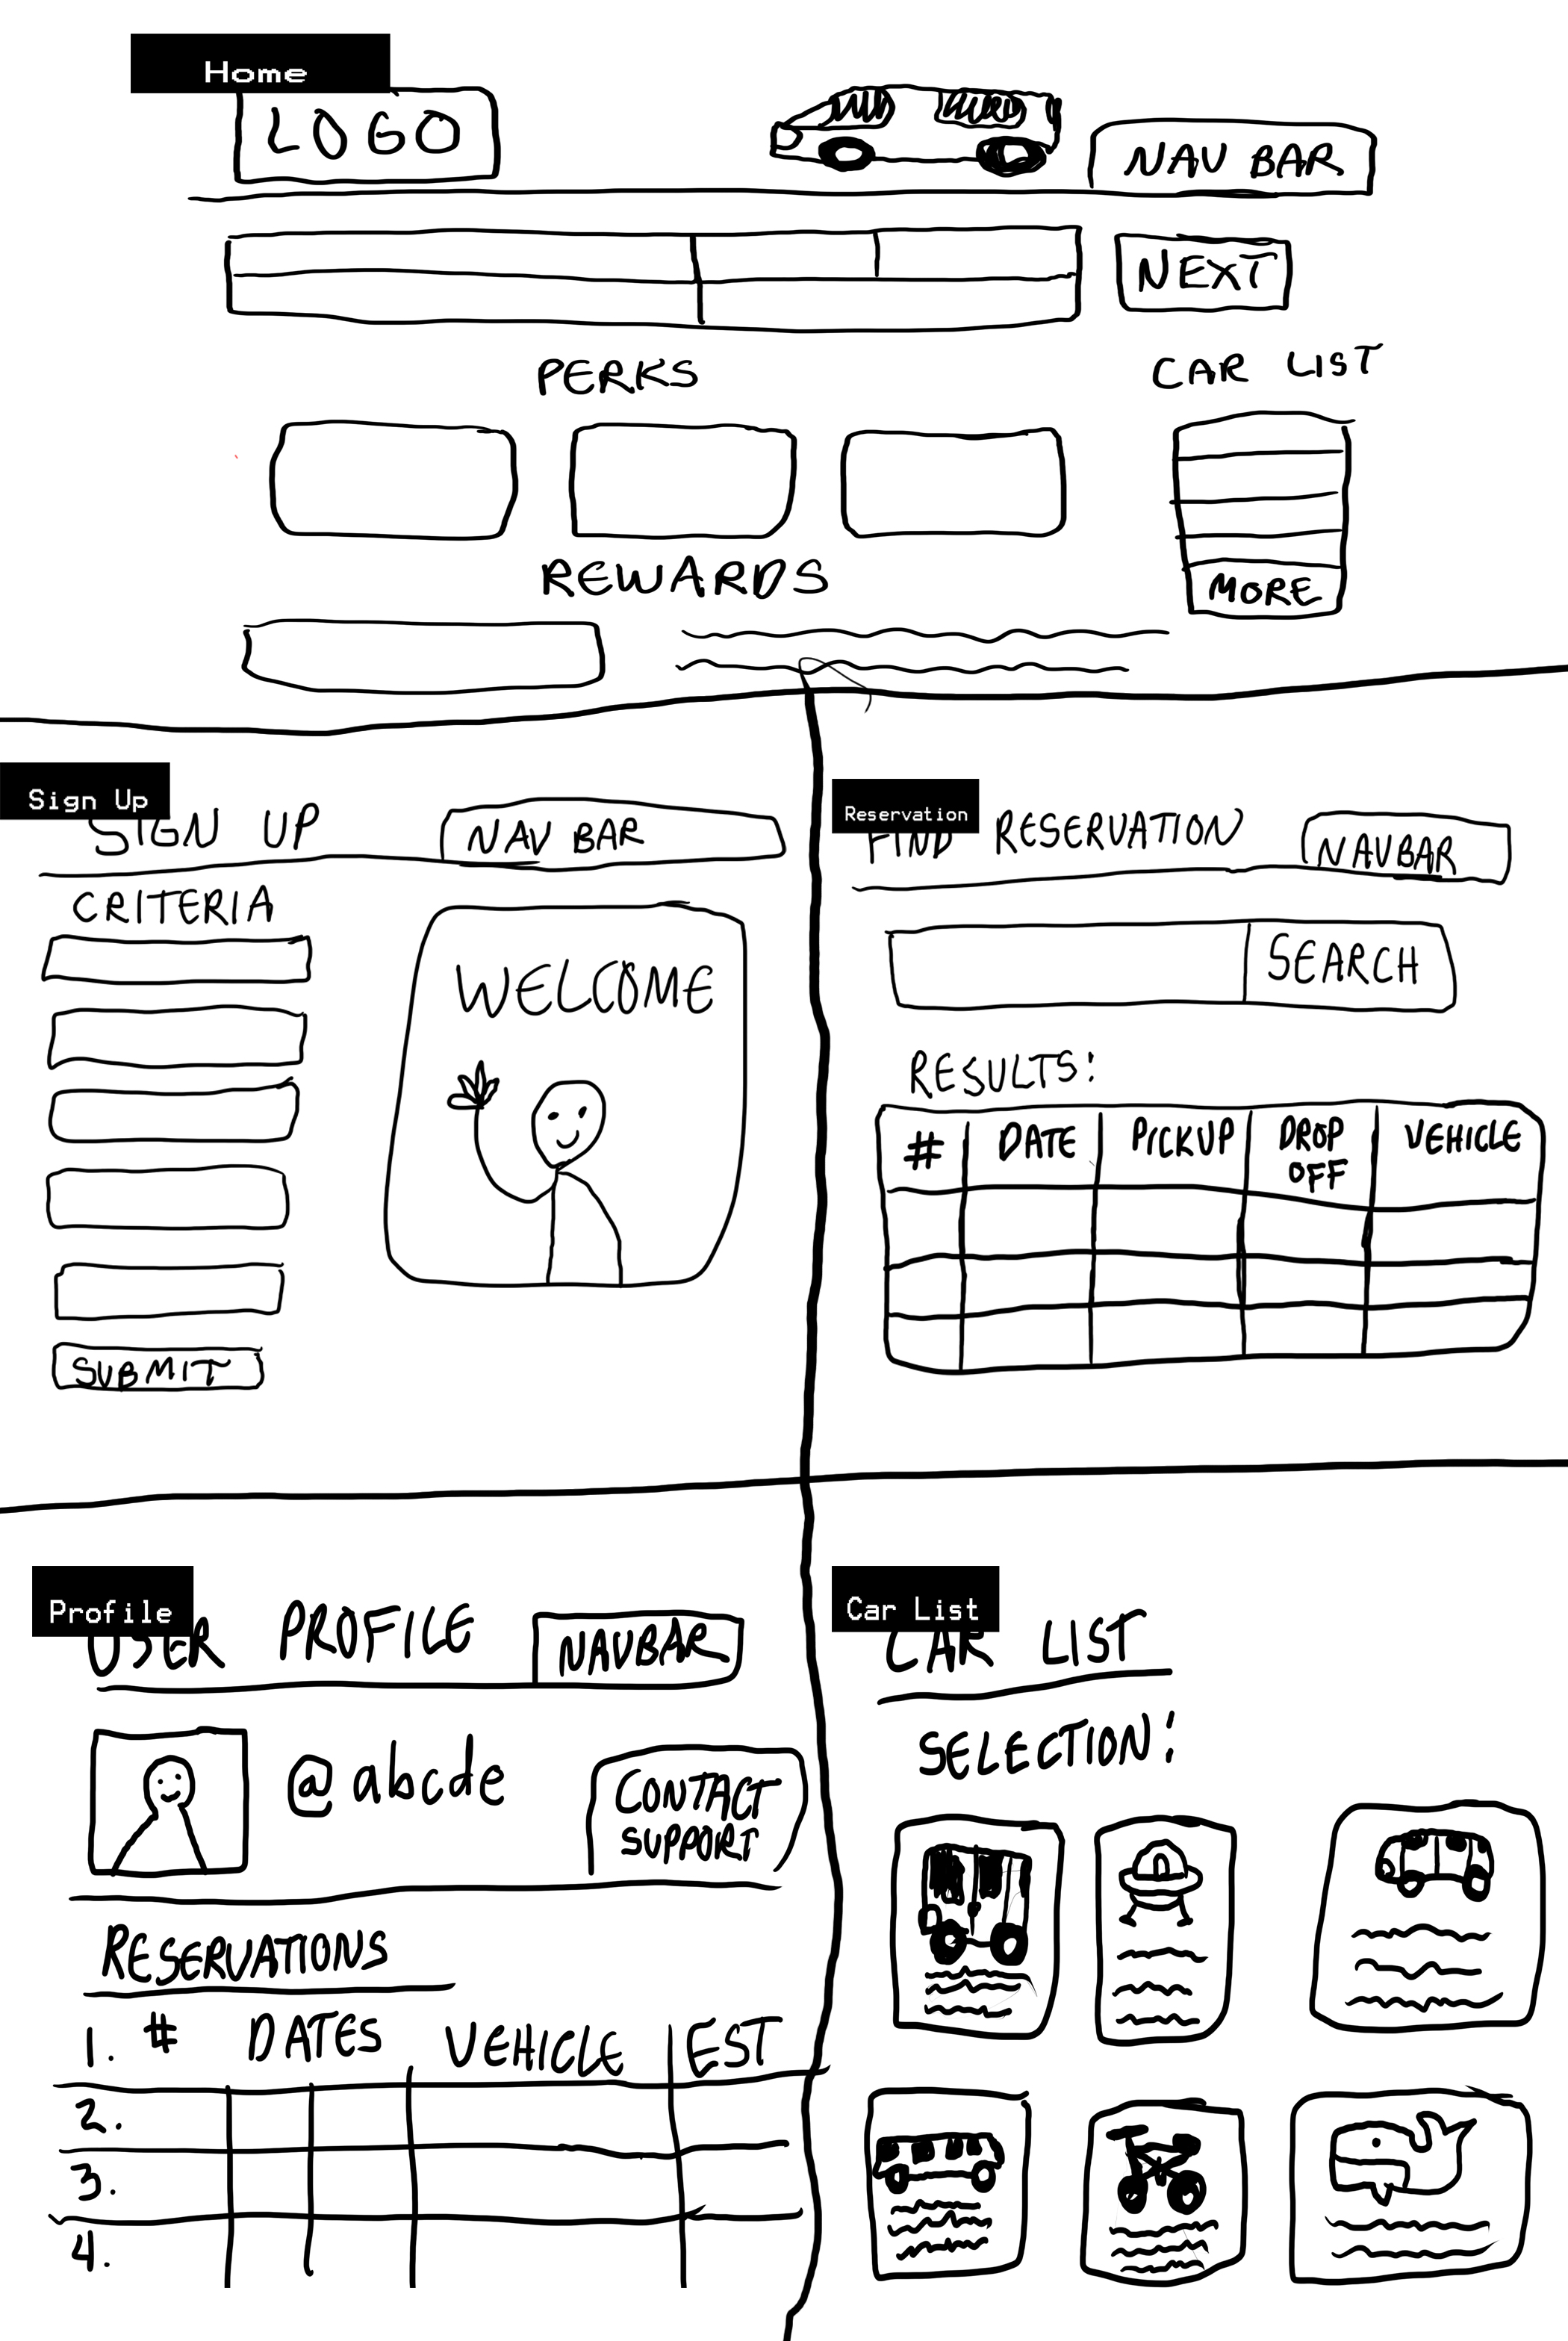 Home
LOGO
NAV BAR
NEXT
PERKS
CAR LIST
MORE
REWARDS
Sign Up
SIGN UP
NAV BAR
CRITERIA
WELCOME
SUBMIT
Reservation
FIND RESERVATION
NAVBAR
SEARCH
RESULTS:
# DATE PICKUP DROP OFF VEHICLE
Profile
USER PROFILE
NAVBAR
@abcde
CONTACT
SUPPORT
RESERVATIONS
1. # DATES VEHICLE EST
2.
3.
4.
Car List
CAR LIST
SELECTION: